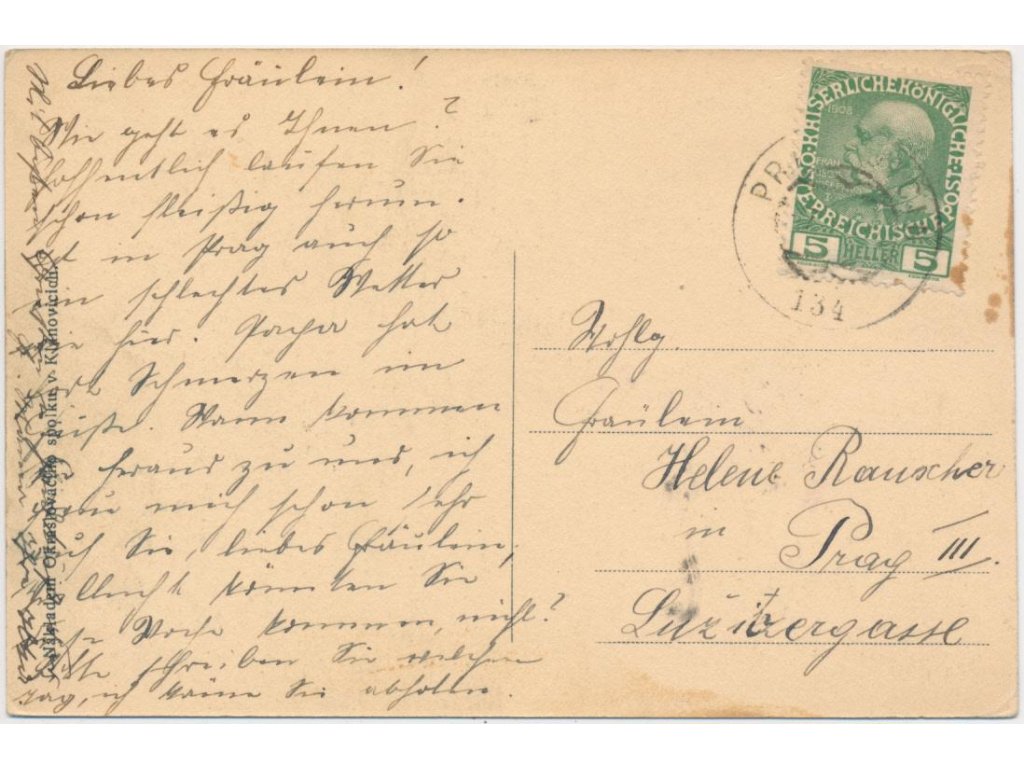 Liebes Fräulein!
Wie geht es Ihnen?
Hoffentlich laufen Sie
schon fleißig herum.
Ist in Prag auch so
ein schlechtes Wetter
wie hier. Papa hat
Schmerzen im
Wann kommen
heraus zu uns, ich
mich schon sehr
auf Sie, liebes Fräulein,
vielleicht könnten Sie
Woche kommen, nicht?
Bitte schreiben Sie welchen
Tag, ich käme Sie abholen.
Nákladem Okrašlovacího spolku v Klánovicích.
KAISERLICHE KÖNIGLICHE
ÖSTERREICHISCHE POST
1908
FRANZ
5 HELLER 5
134
Wohlg.
Fräulein
Helene Rauscher
in Prag III.
Lužitzergasse